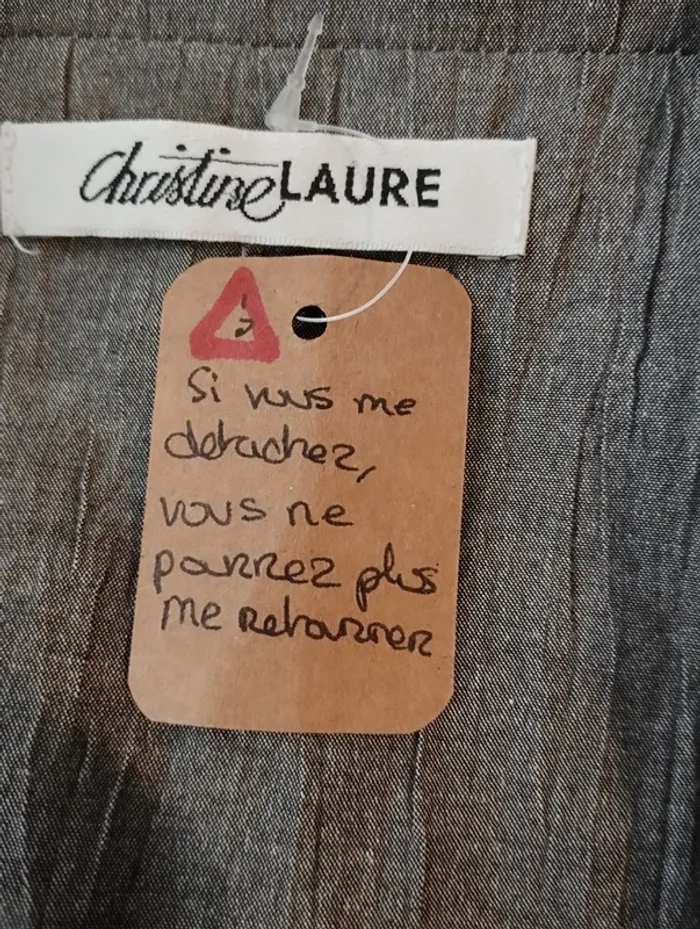 Christine LAURE
Si vous me
detachez,
vous ne
pourrez plus
me retourner